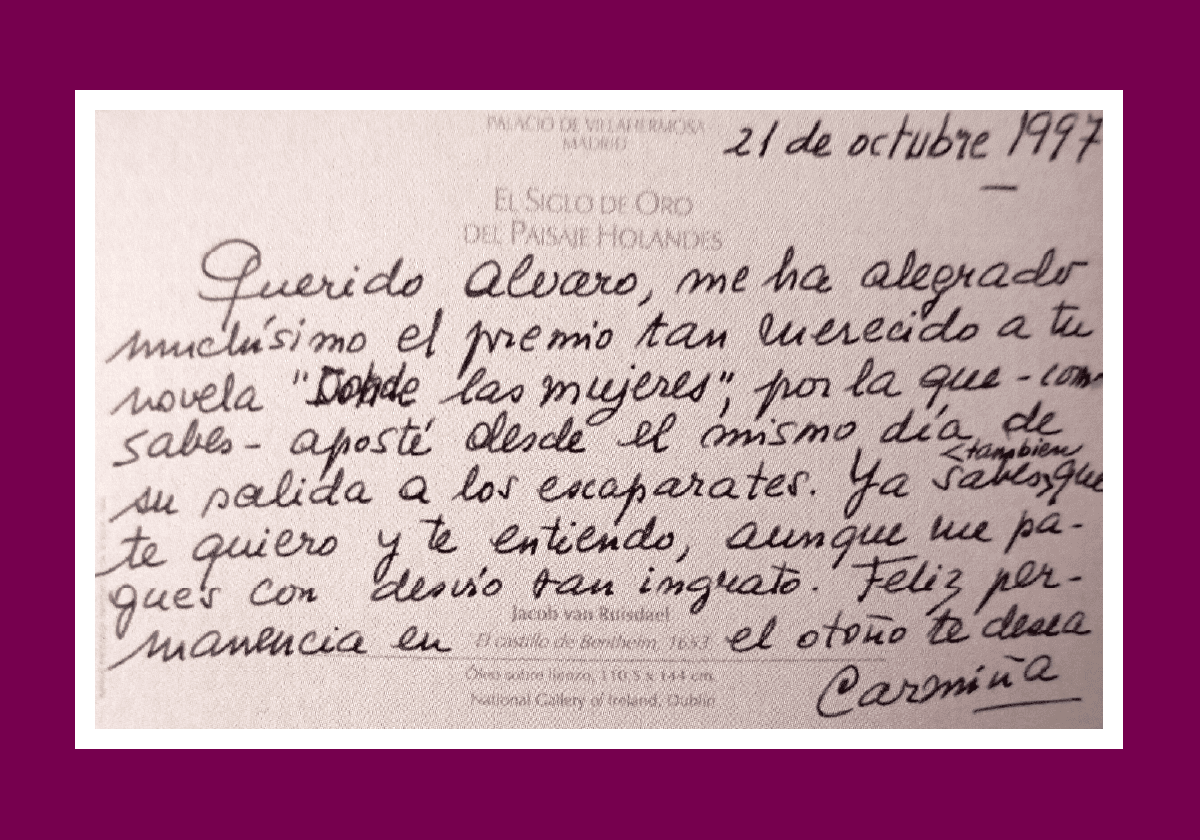 PALACIO DE VILLAHERMOSA
MADRID
21 de octubre 1997
EL SIGLO DE ORO
DEL PAISAJE HOLANDES
Querido Alvaro, me ha alegrado
muchísimo el premio tan merecido a tu
novela "Donde las mujeres", por la que - como
sabes - aposté desde el mismo día de
su salida a los escaparates. Ya sabes <también> que
te quiero y te entiendo, aunque me pa-
gues con desvío tan ingrato. Feliz per-
Jacob van Ruisdael
manencia en El castillo de Bentheim, 1653. el otoño te desea
Óleo sobre lienzo, 110,5 x 144 cm.
National Gallery of Ireland, Dublin
Carmiña